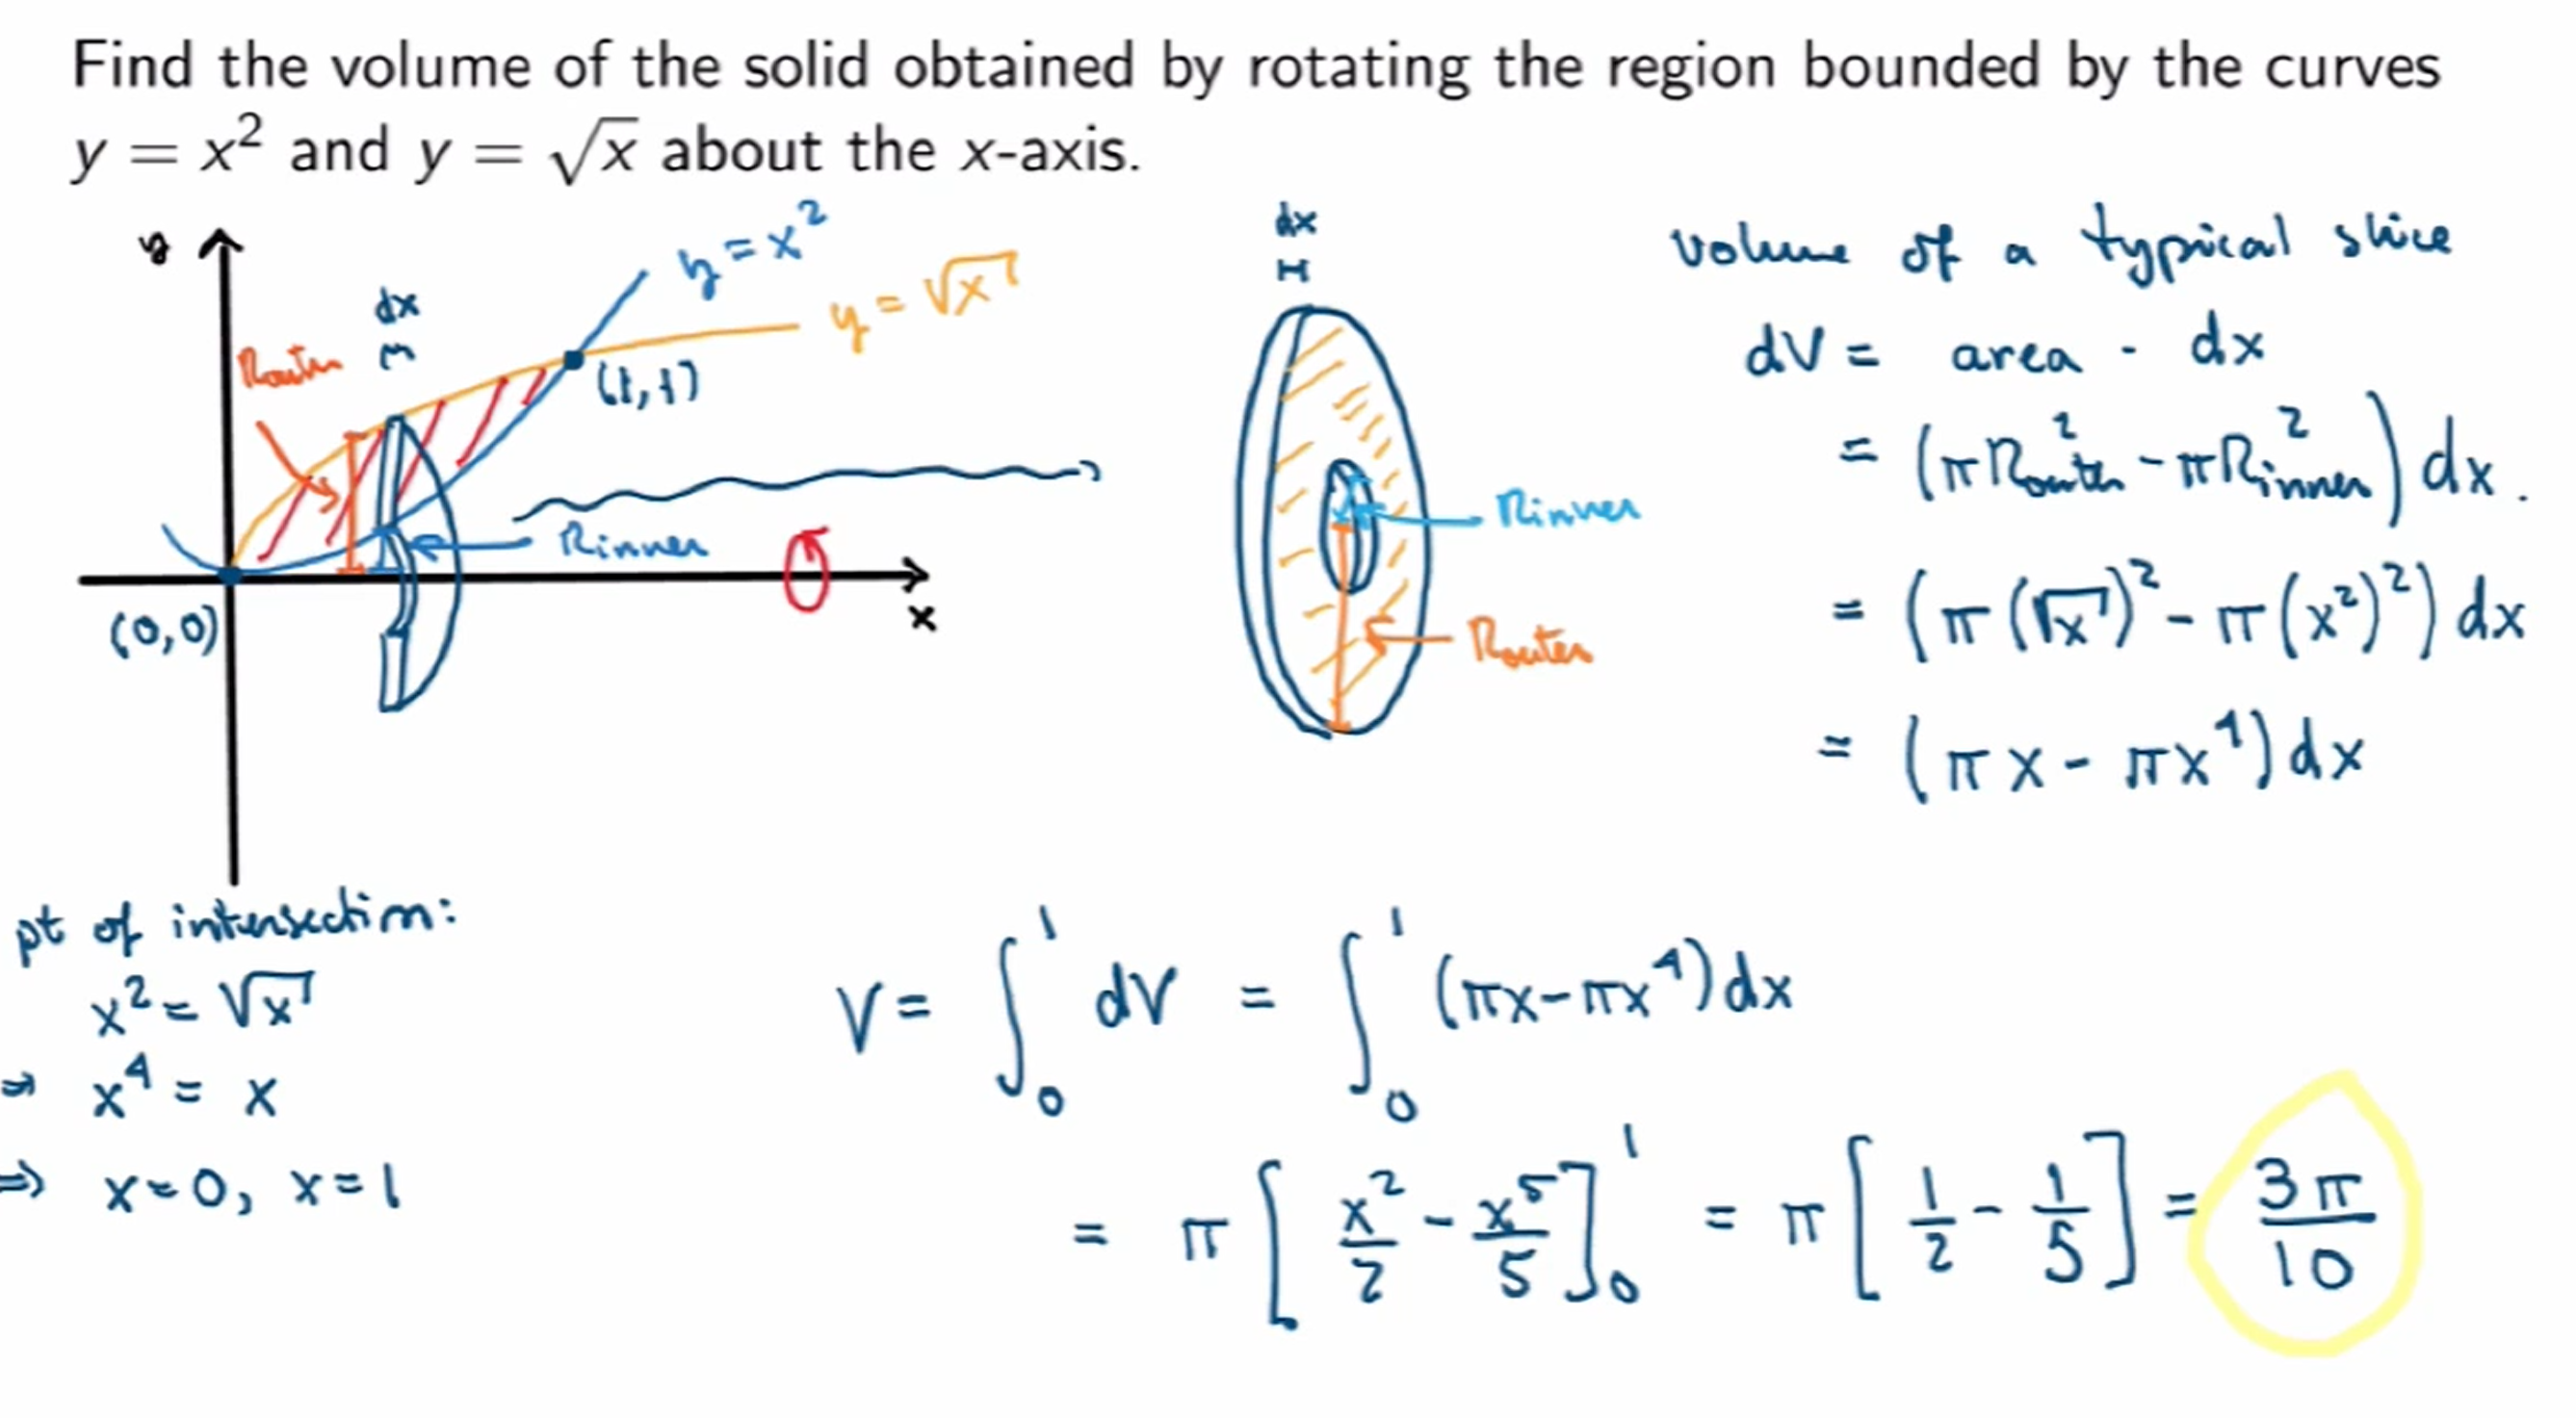 Find the volume of the solid obtained by rotating the region bounded by the curves
y = x² and y = √x about the x-axis.
y
dx
Router
y = x²
y = √x
(1,1)
Rinner
(0,0)
x
dx
Rinner
Router
volume of a typical slice
dV = area · dx
= (πRouter² - πRinner²) dx.
= (π(√x)² - π(x²)²) dx
= (πx - πx⁴) dx
pt of intersection:
x² = √x
⇒ x⁴ = x
⇒ x=0, x=1
V = ∫₀¹ dV = ∫₀¹ (πx-πx⁴)dx
= π[x²/2 - x⁵/5]₀¹ = π[1/2 - 1/5] = 3π/10